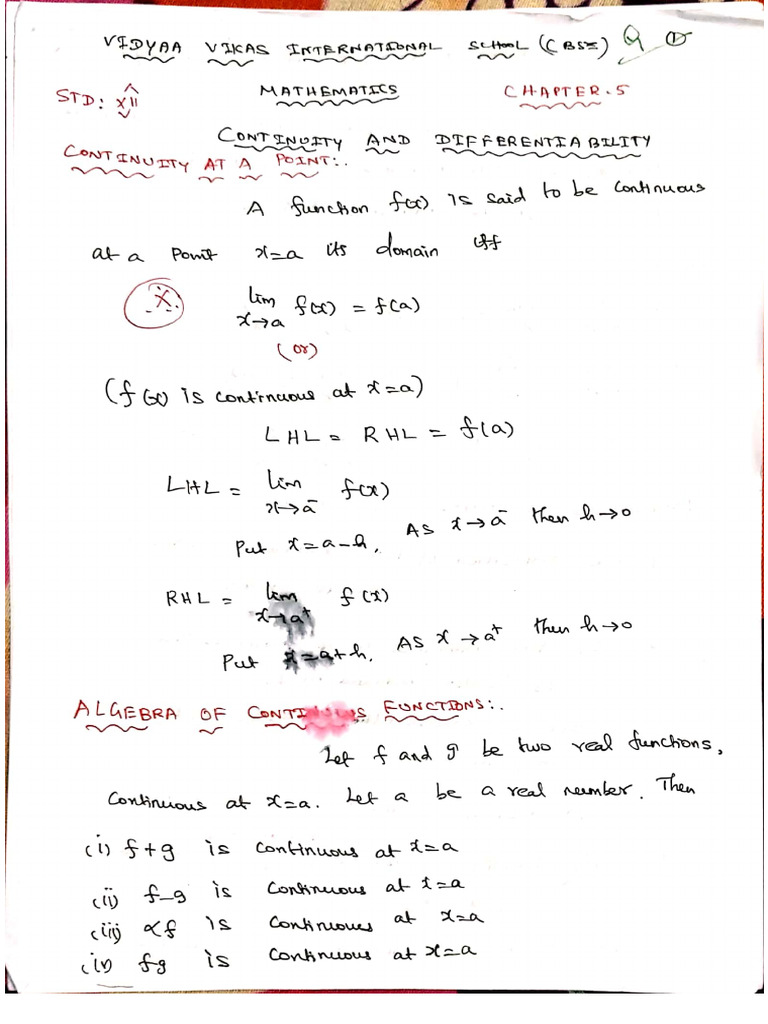 VIDYAA VIKAS INTERNATIONAL SCHOOL (CBSE) ①
STD: XII MATHEMATICS CHAPTER.5
CONTINUITY AND DIFFERENTIABILITY
CONTINUITY AT A POINT:.
A function f(x) is said to be continuous
at a point x=a its domain iff
X
lim x→a f(x) = f(a)
(or)
(f(x) is continuous at x=a)
LHL = RHL = f(a)
LHL = lim x→a⁻ f(x)
Put x=a-h, As x→a⁻ then h→0
RHL = lim x→a⁺ f(x)
Put x=a+h, As x→a⁺ then h→0
ALGEBRA OF CONTINUOUS FUNCTIONS:.
Let f and g be two real functions,
Continuous at x=a. Let α be a real number. Then
(i) f+g is continuous at x=a
(ii) f-g is continuous at x=a
(iii) αf is continuous at x=a
(iv) fg is continuous at x=a